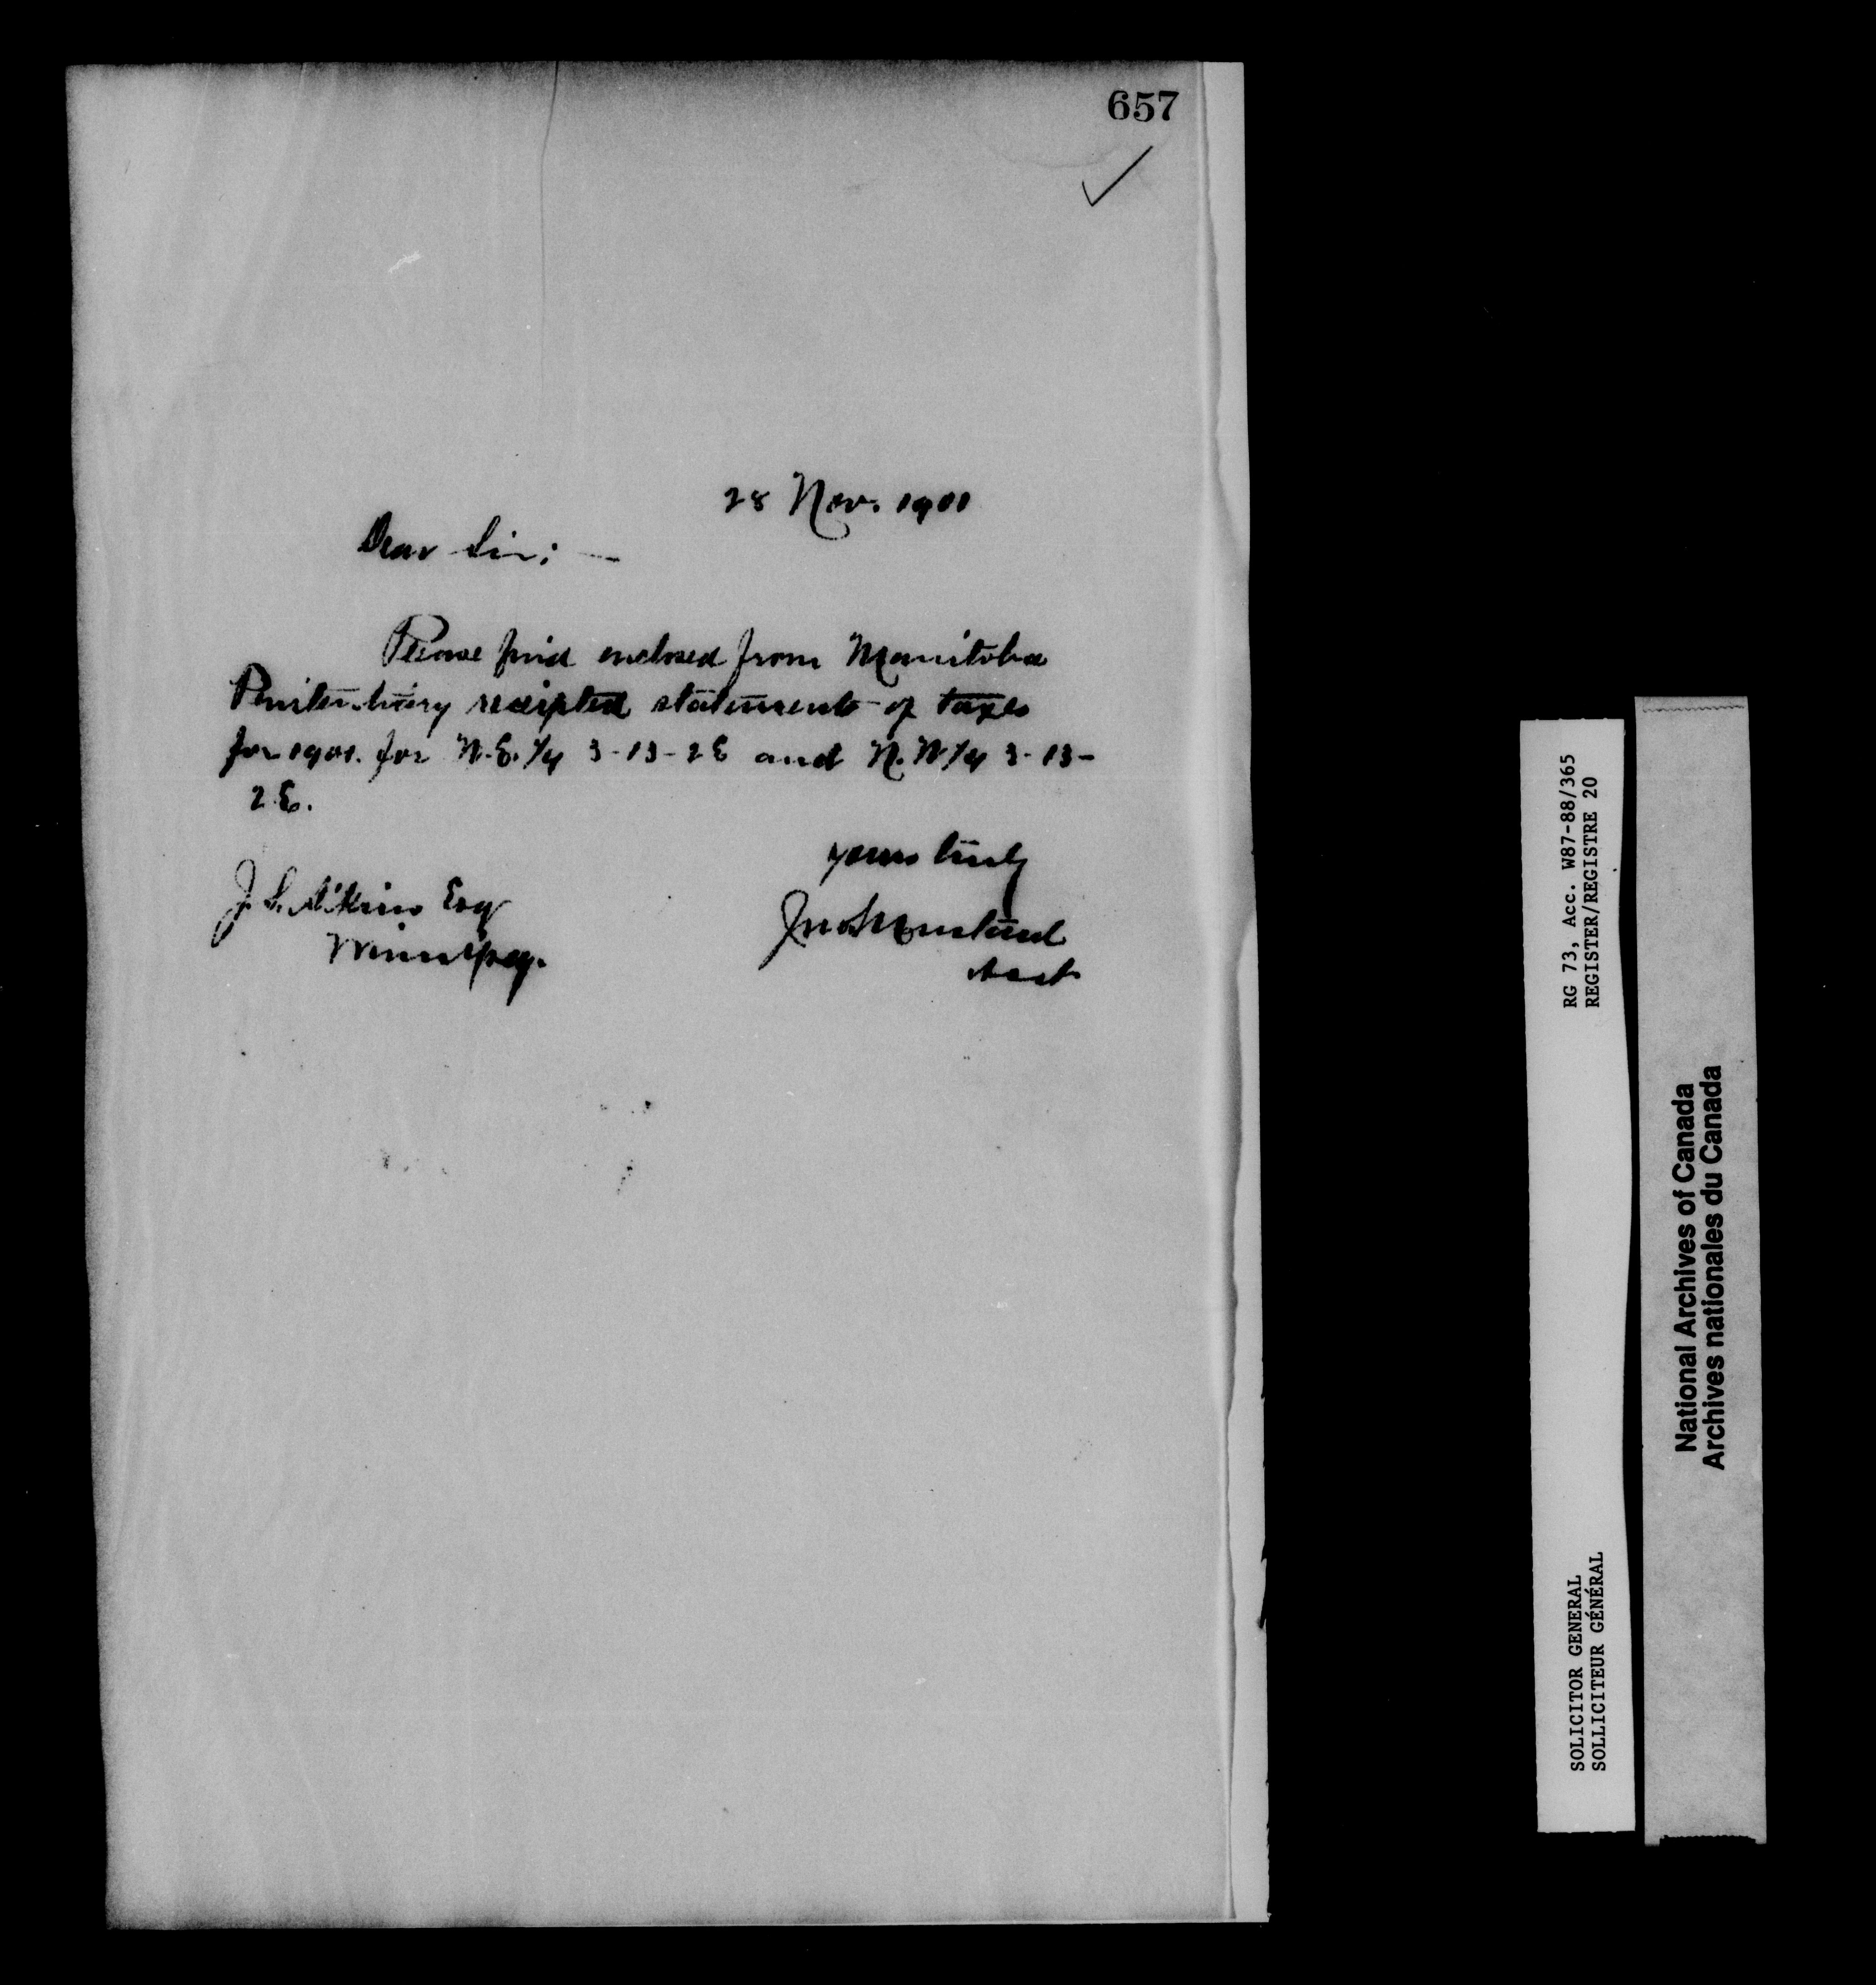 657
28 Nov. 1901
Dear Sir; —
Please find enclosed from Manitoba
Penitentiary receipted statements of taxes
for 1901. for N.E. 1/4 3-13-2E and N.W 1/4 3-13-
2E.
yours truly
J. S. Aikins Esq
Winnipeg.
Acct
RG 73, Acc. W87-88/365
REGISTER/REGISTRE 20
SOLICITOR GENERAL
SOLLICITEUR GÉNÉRAL
National Archives of Canada
Archives nationales du Canada